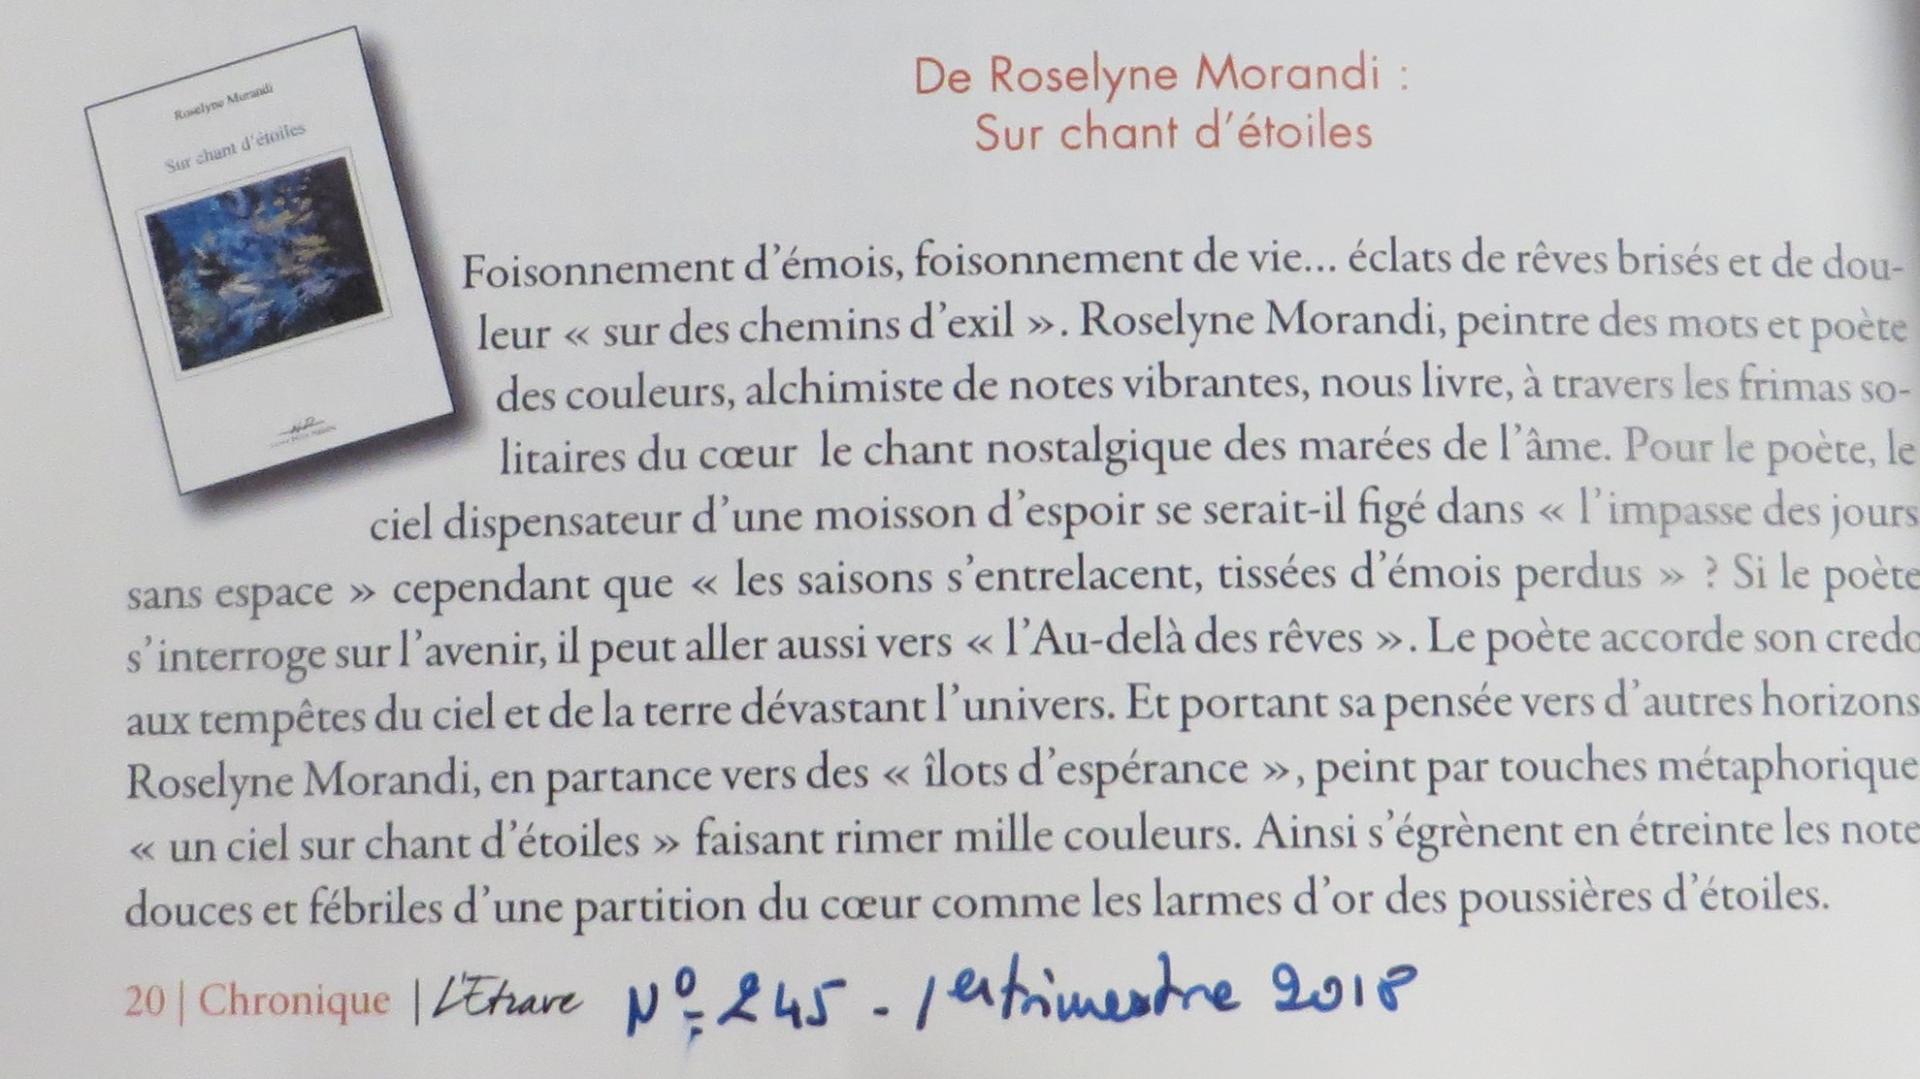 Roselyne Morandi
Sur chant d'étoiles
De Roselyne Morandi :
Sur chant d'étoiles
Foisonnement d'émois, foisonnement de vie... éclats de rêves brisés et de dou-
leur « sur des chemins d'exil ». Roselyne Morandi, peintre des mots et poète
des couleurs, alchimiste de notes vibrantes, nous livre, à travers les frimas so-
litaires du cœur le chant nostalgique des marées de l'âme. Pour le poète, le
ciel dispensateur d'une moisson d'espoir se serait-il figé dans « l'impasse des jours
sans espace » cependant que « les saisons s'entrelacent, tissées d'émois perdus » ? Si le poète
s'interroge sur l'avenir, il peut aller aussi vers « l'Au-delà des rêves ». Le poète accorde son credo
aux tempêtes du ciel et de la terre dévastant l'univers. Et portant sa pensée vers d'autres horizons
Roselyne Morandi, en partance vers des « îlots d'espérance », peint par touches métaphorique
« un ciel sur chant d'étoiles » faisant rimer mille couleurs. Ainsi s'égrènent en étreinte les note
douces et fébriles d'une partition du cœur comme les larmes d'or des poussières d'étoiles.
20 | Chronique | L'Etrave N° 245 - 1er trimestre 2018